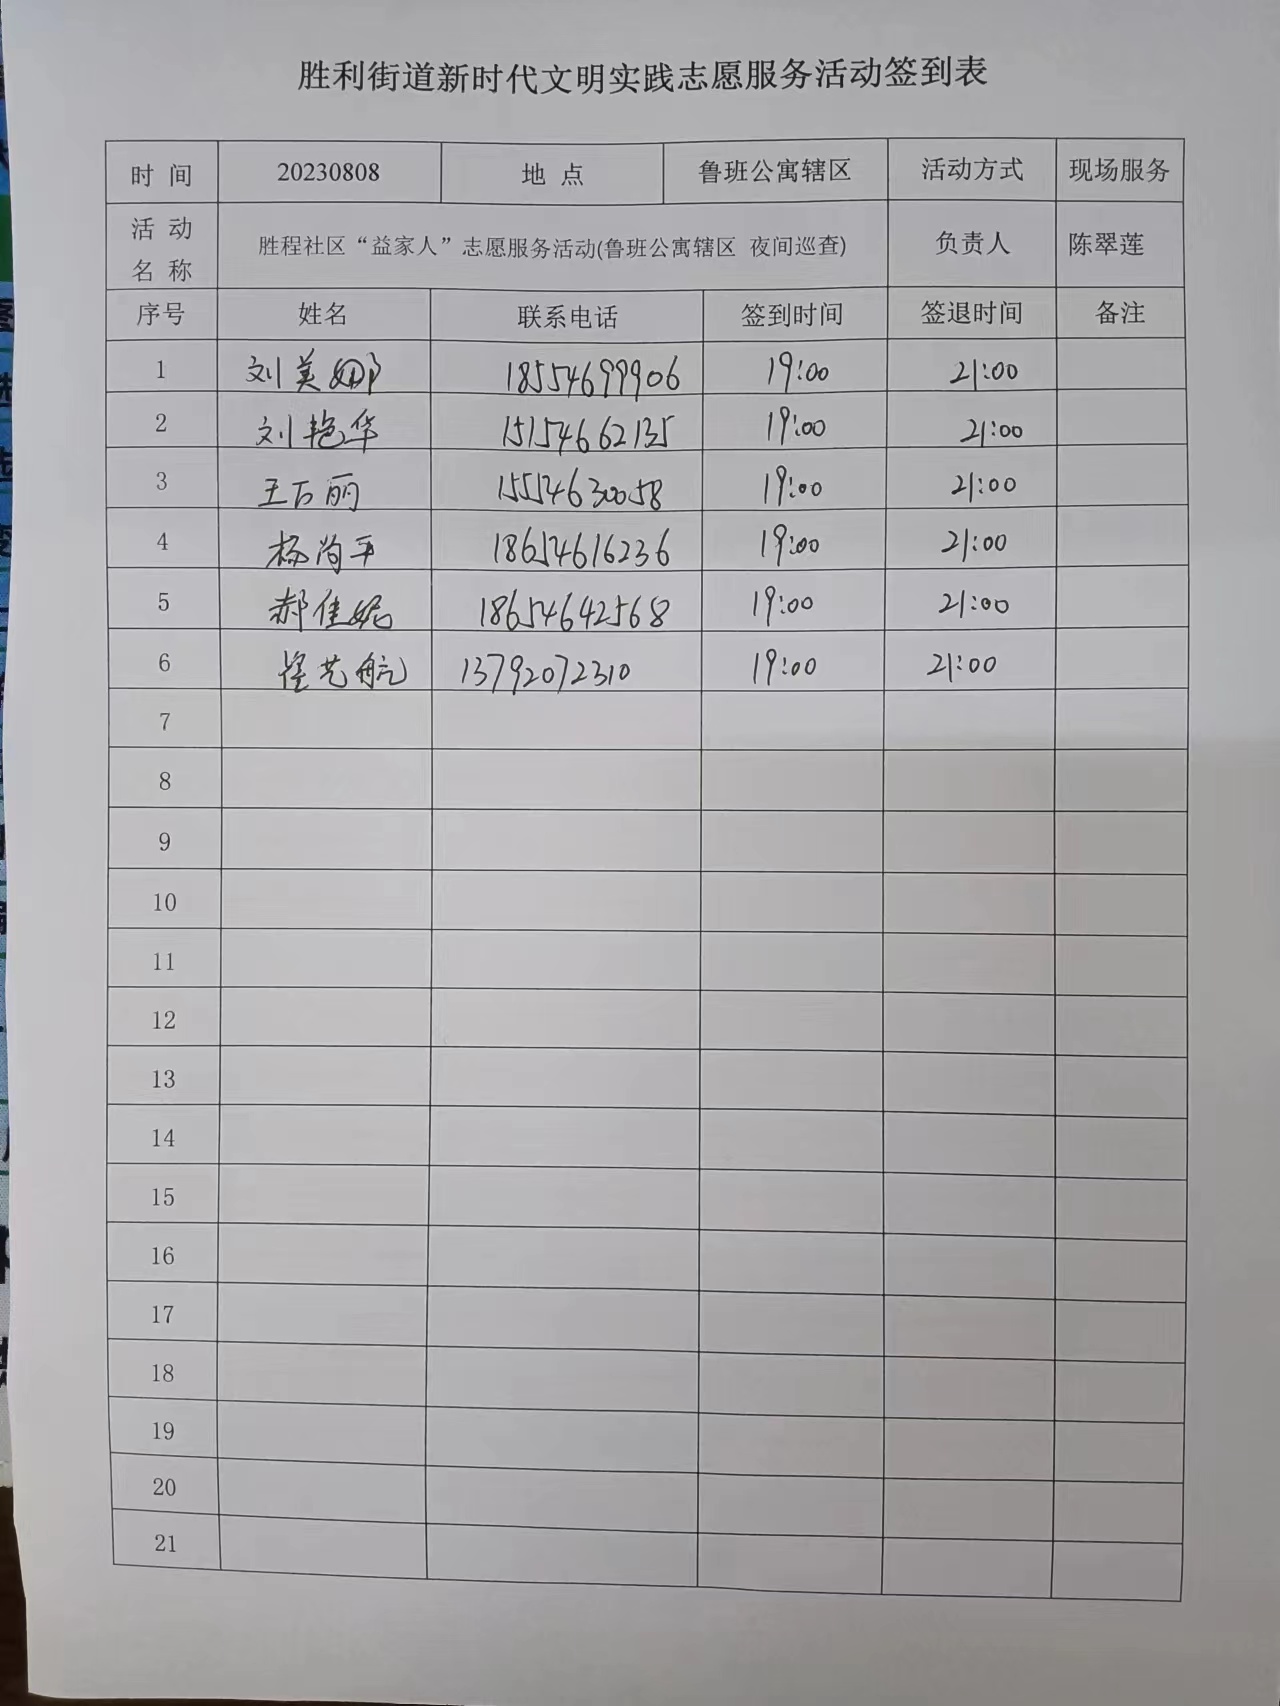 胜利街道新时代文明实践志愿服务活动签到表
时 间 20230808 地 点 鲁班公寓辖区 活动方式 现场服务
活 动 名 称 胜程社区“益家人”志愿服务活动(鲁班公寓辖区 夜间巡查) 负责人 陈翠莲
序号 姓名 联系电话 签到时间 签退时间 备注
1 刘美娜 18554699906 19:00 21:00
2 刘艳华 15154662135 19:00 21:00
3 王万丽 15554630058 19:00 21:00
4 杨尚平 18654616236 19:00 21:00
5 郝佳妮 18654642568 19:00 21:00
6 崔艺航 13792072310 19:00 21:00
7
8
9
10
11
12
13
14
15
16
17
18
19
20
21